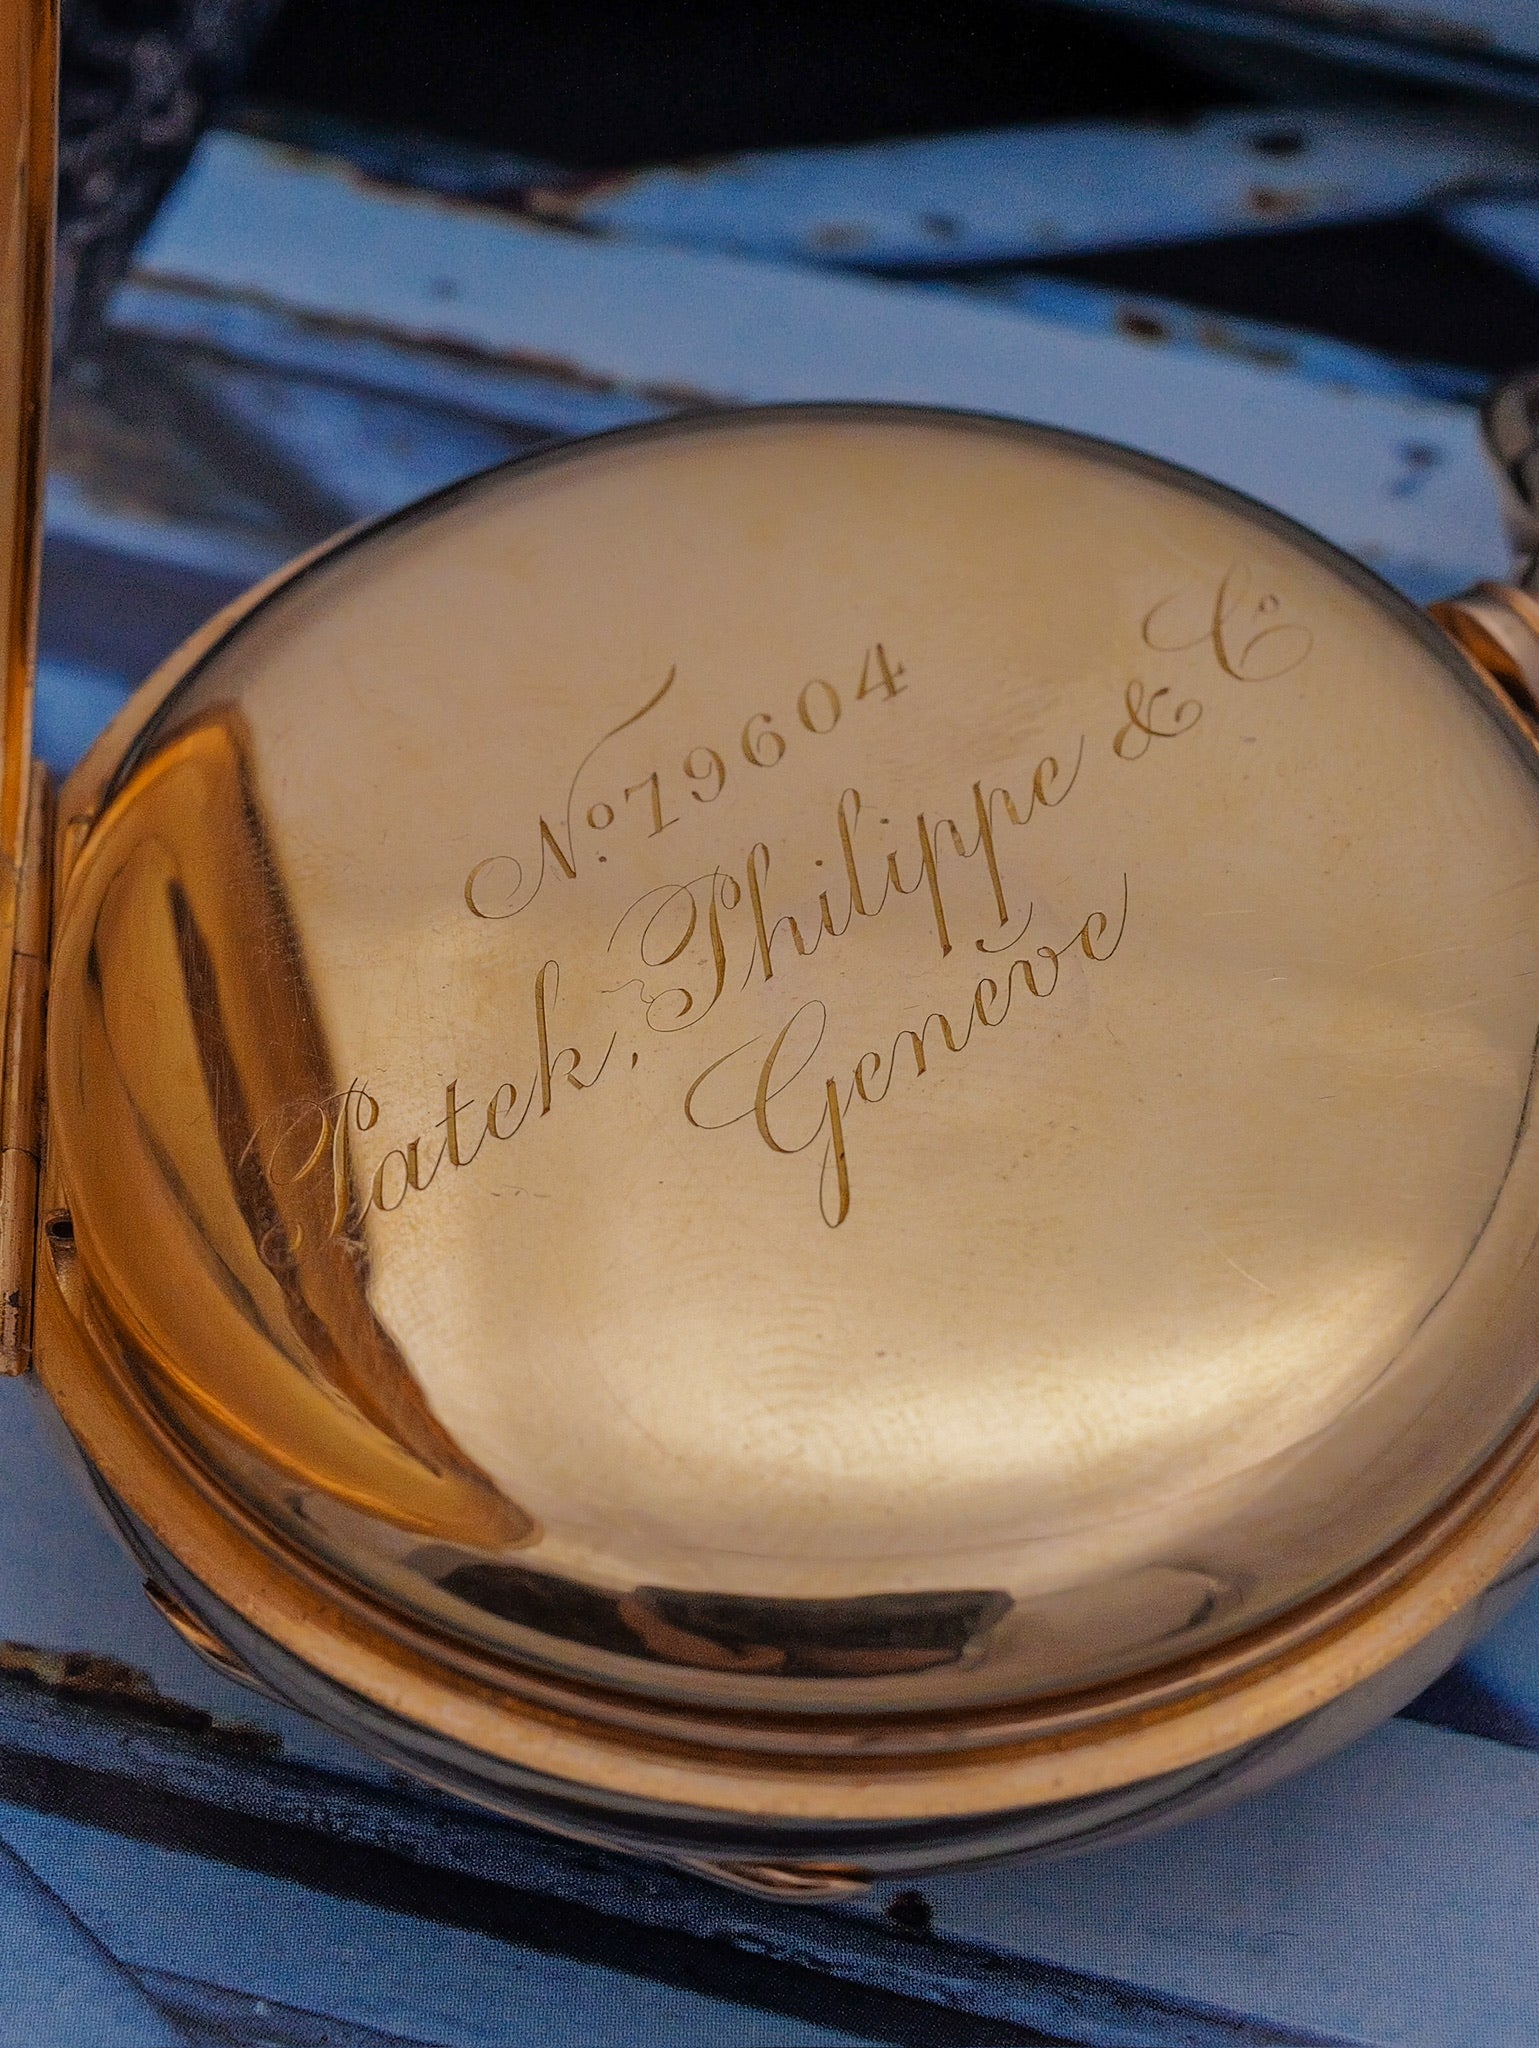 No. 79604
Patek, Philippe & Co
Genève